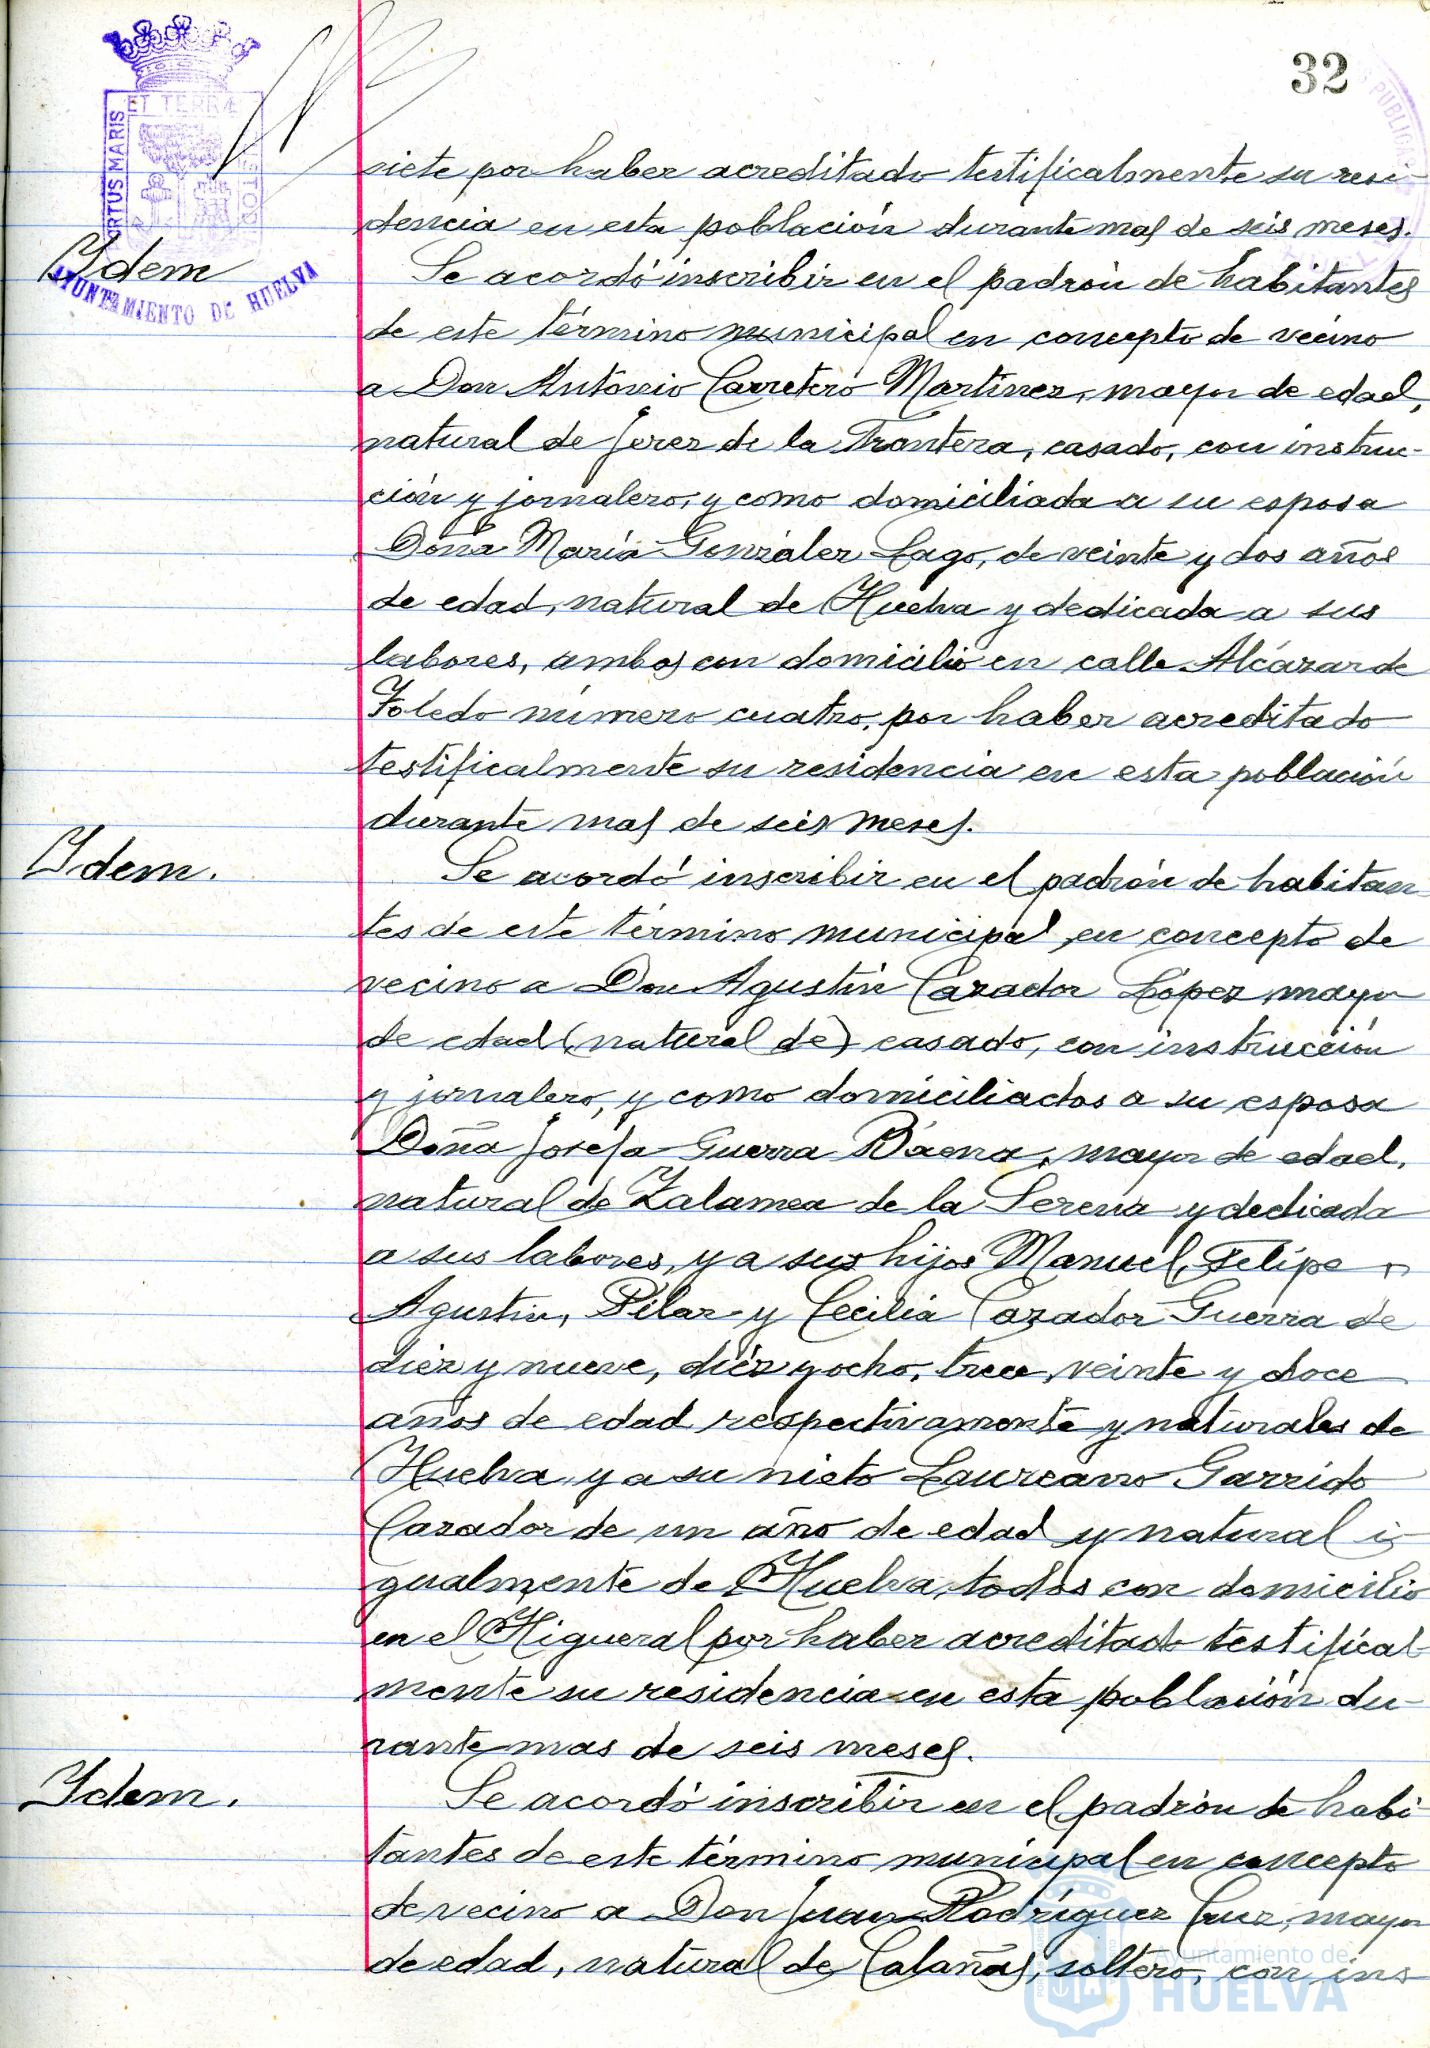 32
siete por haber acreditado testificalmente su resi-
dencia en esta población durante mas de seis meses.
Ydem
Se acordó inscribir en el padrón de habitantes
de este término municipal en concepto de vecino
a Don António Carretero Martínez, mayor de edad,
natural de Jerez de la Frontera, casado, con instruc-
ción y jornalero, y como domiciliada a su esposa
Doña María González Lago, de veinte y dos años
de edad, natural de Huelva y dedicada a sus
labores, ambos con domicilio en calle Alcázar de
Toledo número cuatro, por haber acreditado
testificalmente su residencia en esta población
durante mas de seis meses.
Ydem.
Se acordó inscribir en el padrón de habitan
tes de este término municipal en concepto de
vecino a Don Agustín Cazador López mayor
de edad (natural de) casado, con instrucción
y jornalero, y como domiciliados a su esposa
Doña Josefa Guerra Báena, mayor de edad,
natural de Zalamea de la Serena y dedicada
a sus labores, y a sus hijos Manuel, Felipe,
Agustín, Pilar y Cecilia Cazador Guerra de
diez y nueve, diez y ocho, trece, veinte y doce
años de edad respectivamente y naturales de
Huelva, y a su nieto Laureano Garrido
Cazador de un año de edad y natural i-
gualmente de Huelva, todos con domicilio
en el Higueral por haber acreditado testifical
mente su residencia en esta población du-
rante mas de seis meses.
Ydem.
Se acordó inscribir en el padrón de habi-
tantes de este término municipal en concepto
de vecino a Don Juan Rodríguez Cruz, mayor
de edad, natural de Calañas, soltero, con ins
ET TERRÆ
PORTUS MARIS
CUSTO
AYUNTAMIENTO DE HUELVA
Ayuntamiento de
HUELVA